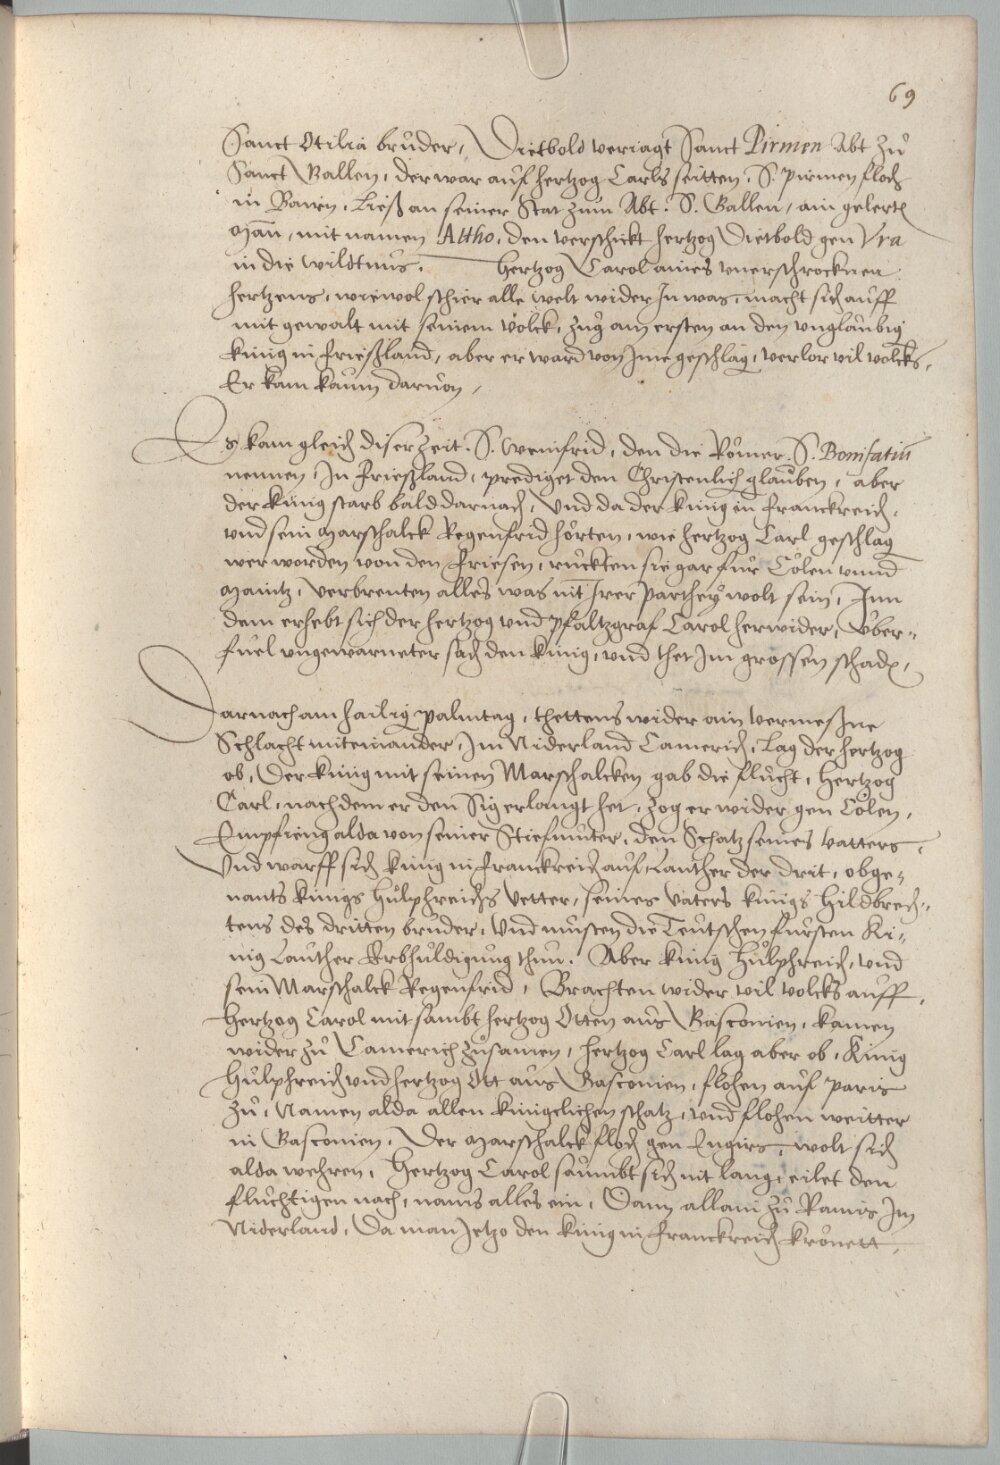 69
Sanct Otilia brůder, Dietbold veriagt Sanct Pirmen Abt zů
Sanct Gallen, der war auf hertzog Carls seitten. S. pirmen floch
in Bairn, Ließ an seiner Stat zum Abt. S. Gallen, ain gelerte
Man, mit namen Altho, den verschickt hertzog Dietbold gen Vra
in die wildtnus. Hertzog Carol aines vnerschrocknen
hertzens, wiewol schier alle welt wider In was, macht sich auff
mit gewalt mit seinem volck, zug am ersten an den vnglaubig
künig in frießland, aber er ward von Ime geschlag, verlor vil volcks,
Er kam kaum daruon,
Es kam gleich diser zeit. S. Weinfrid, den die Römer. S. Bonifatiu
nennen, In frießland, prediget den Christenlich glauben, aber
der künig starb bald darnach, Vnd da der künig in franckreich,
vnd sein Marschalck Regenfrid hörten, wie hertzog Carl geschlag
wer worden von den friesen, ruckten sie gar für Cölen vnnd
Maintz, verbrenten alles was nit Irer parthey wolt sein, Inn
dem erhebt sich der hertzog vnd pfaltzgraf Carol herwider, Vber-
fuel vngewarneter sach den künig, vnd thet Im grossen schade,
Darnach am hailig palmtag, thettens wider ain vermeßne
Schlacht miteinander, Im Niderland Camerich, Lag der hertzog
ob, Der künig mit seinen Marschalcken gab die flucht, Hertzog
Carl, nachdem er den Sig erlangt het, zog er wider gen Cölen,
Empfieng alda von seiner Stiefmuter, den Schatz seines vatters,
Vnd warff sich künig in franckreich auf, Lauther der drit, obge-
nants künigs Hulphreichs vetter, seines vaters künigs Hildbrech-
tens des dritten bruder, Vnd musten die Teutschen fursten Ki-
nig Lauther Erbhuldigung thun. Aber künig Hulphreich, vnd
sein Marschalck Regenfrid, Brachten wider vil volcks auff,
Hertzog Carol mit sambt hertzog Otten aus Vasconien, kamen
wider zů Camerich zusamen, hertzog Carl lag aber ob, Künig
Hulphreich vnd hertzog Ott aus Vasconien, flohen auf paris
zů, Namen alda allen künigclichen schatz, vnd flohen weitter
in Vasconien, Der Marschalck floch gen Engiers, wolt sich
alda wehren, Hertzog Carol saumbt sich nit lang, eilet den
fluchtigen nach, nams alles ein, Dann allain zů Ramis Im
Niderland, Da man Ietzo den künig in franckreich krönett,